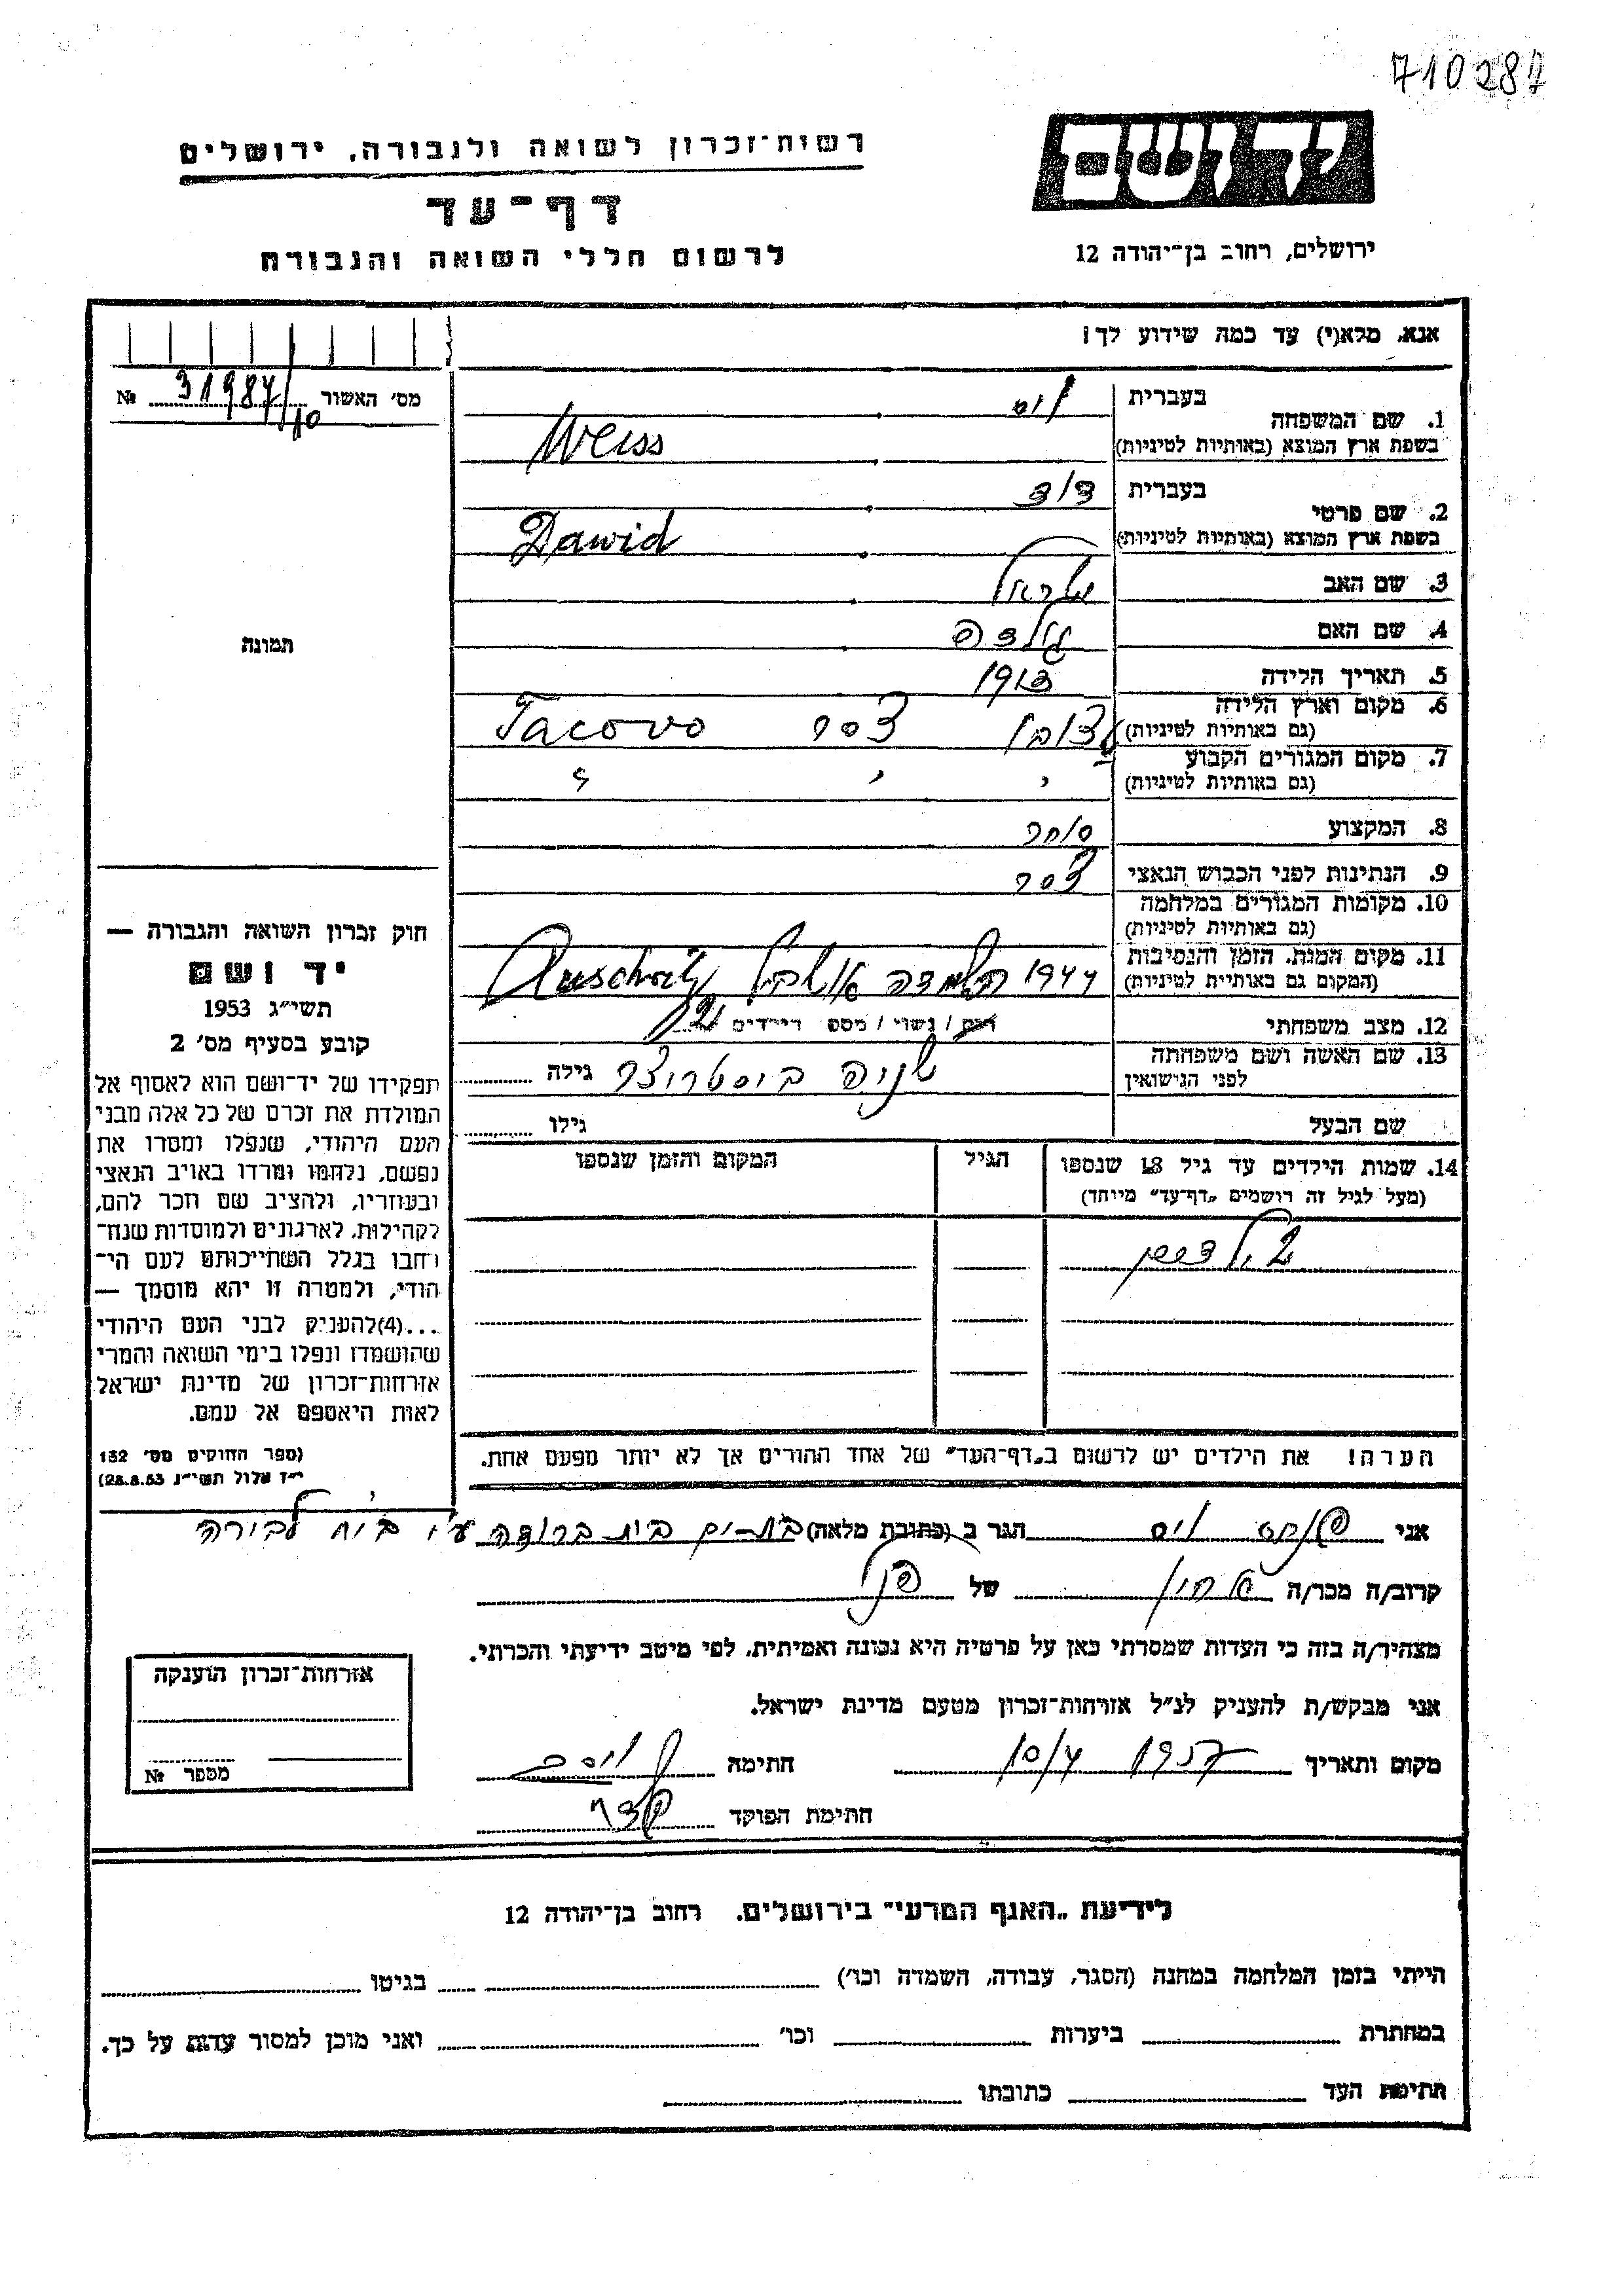 710282
רשות־זכרון לשואה ולגבורה, ירושלים
דף־עד
לרשום חללי השואה והגבורה
יד ושם
ירושלים, רחוב בן־יהודה 12
אנא, מלא(י) עד כמה שידוע לך!
מס׳ האשור 31987/10 №
1. שם המשפחה
בעברית ויס
בשפת ארץ המוצא (באותיות לטיניות) Weiss
2. שם פרטי
בעברית דוד
בשפת ארץ המוצא (באותיות לטיניות) Dawid
3. שם האב ישראל
4. שם האם גולדה
5. תאריך הלידה 1913
6. מקום וארץ הלידה
(גם באותיות לטיניות) צ׳כר Tacovo
7. מקום המגורים הקבוע
(גם באותיות לטיניות) " " "
8. המקצוע סוחר
9. הנתינות לפני הכבוש הנאצי צ׳כר
10. מקומות המגורים במלחמה
(גם באותיות לטיניות)
11. מקום המות, הזמן והנסיבות
(המקום גם באותיית לטיניות) 1944 השמדה Auschwitz
12. מצב משפחתי רווק / נשוי / מספר הילדים 2
13. שם האשה ושם משפחתה
לפני הנישואין גילה
שם הבעל גילו
14. שמות הילדים עד גיל 18 שנספו
(מעל לגיל זה רושמים „דף־עד" מיוחד)
הגיל
המקום והזמן שנספו
2 ילדים
הערה! את הילדים יש לרשום ב„דף־העד" של אחד ההורים אך לא יותר מפעם אחת.
תמונה
חוק זכרון השואה והגבורה —
יד ושם
תשי״ג 1953
קובע בסעיף מס׳ 2
תפקידו של יד־ושם הוא לאסוף אל
המולדת את זכרם של כל אלה מבני
העם היהודי, שנפלו ומסרו את
נפשם, נלחמו ומרדו באויב הנאצי
ובעוזריו, ולהציב שם וזכר להם,
לקהילות, לארגונים ולמוסדות שנח־
רחבו בגלל השתייכותם לעם הי־
הודי, ולמטרה זו יהא מוסמך —
...(4)להעניק לבני העם היהודי
שהושמדו ונפלו בימי השואה והמרי
אזרחות־זכרון של מדינת ישראל
לאות היאספם אל עמם.
(ספר החוקים מס׳ 132
י״ז אלול תשי״ג 28.8.53)
אני ויס הגר ב (כתובת מלאה) בת-ים
קרוב/ה מכר/ה של הנ״ל
מצהיר/ה בזה כי העדות שמסרתי כאן על פרטיה היא נכונה ואמיתית, לפי מיטב ידיעתי והכרתי.
אני מבקש/ת להעניק לנ״ל אזרחות־זכרון מטעם מדינת ישראל.
מקום ותאריך 10/4 1957 חתימה
חתימת הפוקד
אזרחות־זכרון הוענקה
מספר №
לידיעת „האגף המדעי" בירושלים, רחוב בן־יהודה 12
הייתי בזמן המלחמה במחנה (הסגר, עבודה, השמדה וכו׳) בגיטו
במחתרת ביערות וכו׳ ואני מוכן למסור עדות על כך.
חתימת העד כתובתו